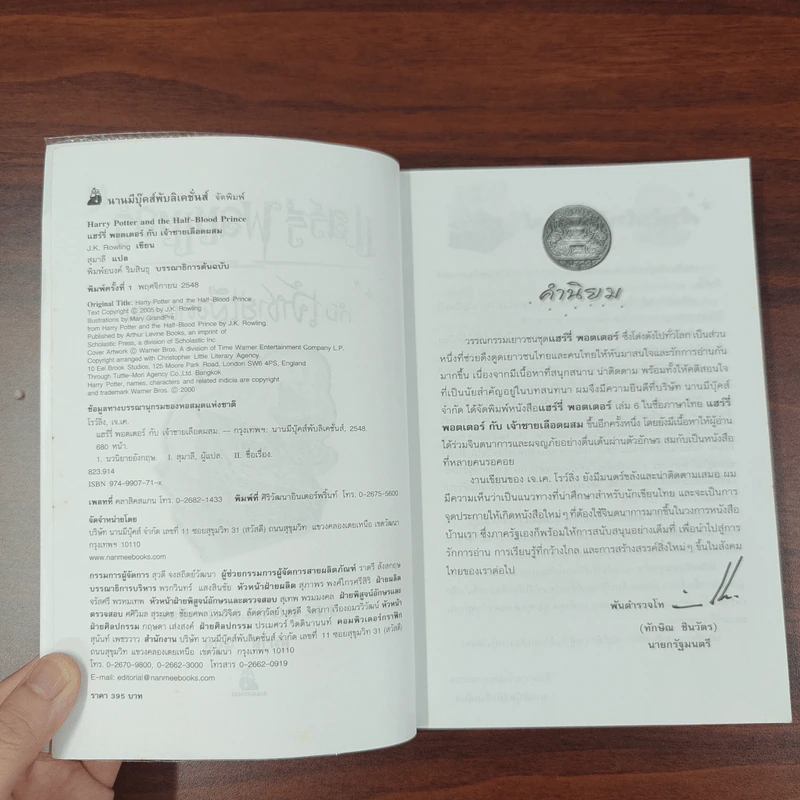 นานมีบุ๊คส์พับลิเคชั่นส์ จัดพิมพ์
Harry Potter and the Half-Blood Prince
แฮร์รี่ พอตเตอร์ กับ เจ้าชายเลือดผสม
J.K. Rowling เขียน
สุมาลี แปล
พิมพ์อนงค์ ริมสินธุ บรรณาธิการต้นฉบับ
พิมพ์ครั้งที่ 1 พฤศจิกายน 2548
Original Title: Harry Potter and the Half-Blood Prince
Text Copyright © 2005 by J.K. Rowling
Illustrations by Mary GrandPré
from Harry Potter and the Half-Blood Prince by J.K. Rowling.
Published by Arthur Levine Books, an imprint of
Scholastic Press, a division of Scholastic Inc.
Cover Artwork © Warner Bros. A division of Time Warner Entertainment Company L.P.
Copyright arranged with Christopher Little Literary Agency.
10 Eel Brook Studios, 125 Moore Park Road, London SW6 4PS, England
Through Tuttle-Mori Agency Co., Ltd. Bangkok
Harry Potter, names, characters and related indicia are copyright
and trademark Warner Bros. © 2000
ข้อมูลทางบรรณานุกรมของหอสมุดแห่งชาติ
โรว์ลิ่ง, เจ.เค.
แฮร์รี่ พอตเตอร์ กับ เจ้าชายเลือดผสม. — กรุงเทพฯ: นานมีบุ๊คส์พับลิเคชั่นส์, 2548.
680 หน้า.
1. นวนิยายอังกฤษ. I. สุมาลี, ผู้แปล. II. ชื่อเรื่อง.
823.914
ISBN 974-9907-71-x
เพลทที่ คลาสิคสแกน โทร. 0-2682-1433 พิมพ์ที่ ศิริวัฒนาอินเตอร์พริ้นท์ โทร. 0-2675-5600
จัดจำหน่ายโดย
บริษัท นานมีบุ๊คส์ จำกัด เลขที่ 11 ซอยสุขุมวิท 31 (สวัสดี) ถนนสุขุมวิท แขวงคลองเตยเหนือ เขตวัฒนา
กรุงเทพฯ 10110
www.nanmeebooks.com
กรรมการผู้จัดการ สุวดี จงสถิตย์วัฒนา ผู้ช่วยกรรมการผู้จัดการสายผลิตภัณฑ์ ราตรี สังสกฤษ
บรรณาธิการบริหาร พรกวินทร์ แสงสินชัย หัวหน้าฝ่ายผลิต สุภาพร พงศ์ไกรศรีสิริ ฝ่ายผลิต
จรัสศรี พรหมเทพ หัวหน้าฝ่ายพิสูจน์อักษรและตรวจสอบ สุเทพ พรมมงคล ฝ่ายพิสูจน์อักษรและ
ตรวจสอบ คศิวิมล สุระเดช ชัยยศพล เหมวิจิตร ลัดดาวัลย์ บุตรดี จิดาภา เรืองอมรวิวัฒน์ หัวหน้า
ฝ่ายศิลปกรรม กฤษดา เส่งสงค์ ฝ่ายศิลปกรรม ประเมศวร์ วิตตินานนท์ คอมพิวเตอร์กราฟิก
สุนันท์ เพชรวาว สำนักงาน บริษัท นานมีบุ๊คส์พับลิเคชั่นส์ จำกัด เลขที่ 11 ซอยสุขุมวิท 31 (สวัสดี)
ถนนสุขุมวิท แขวงคลองเตยเหนือ เขตวัฒนา กรุงเทพฯ 10110
โทร. 0-2670-9800, 0-2662-3000 โทรสาร 0-2662-0919
E-mail: editorial@nanmeebooks.com
ราคา 395 บาท
คำนิยม
วรรณกรรมเยาวชนชุดแฮร์รี่ พอตเตอร์ ซึ่งโด่งดังไปทั่วโลก เป็นส่วน
หนึ่งที่ช่วยดึงดูดเยาวชนไทยและคนไทยให้หันมาสนใจและรักการอ่านกัน
มากขึ้น เนื่องจากมีเนื้อหาที่สนุกสนาน น่าติดตาม พร้อมทั้งให้คติสอนใจ
ที่เป็นนัยสำคัญอยู่ในบทสนทนา ผมจึงมีความยินดีที่บริษัท นานมีบุ๊คส์
จำกัด ได้จัดพิมพ์หนังสือแฮร์รี่ พอตเตอร์ เล่ม 6 ในชื่อภาษาไทย แฮร์รี่
พอตเตอร์ กับ เจ้าชายเลือดผสม ขึ้นอีกครั้งหนึ่ง โดยยังมีเนื้อหาให้ผู้อ่าน
ได้ร่วมจินตนาการและผจญภัยอย่างตื่นเต้นผ่านตัวอักษร สมกับเป็นหนังสือ
ที่หลายคนรอคอย
งานเขียนของ เจ.เค. โรว์ลิ่ง ยังมีมนตร์ขลังและน่าติดตามเสมอ ผม
มีความเห็นว่าเป็นแนวทางที่น่าศึกษาสำหรับนักเขียนไทย และจะเป็นการ
จุดประกายให้เกิดหนังสือใหม่ๆ ที่ต้องใช้จินตนาการมากขึ้นในวงการหนังสือ
บ้านเรา ซึ่งภาครัฐเองก็พร้อมให้การสนับสนุนอย่างเต็มที่ เพื่อนำไปสู่การ
รักการอ่าน การเรียนรู้ที่กว้างไกล และการสร้างสรรค์สิ่งใหม่ๆ ขึ้นในสังคม
ไทยของเราต่อไป
พันตำรวจโท
(ทักษิณ ชินวัตร)
นายกรัฐมนตรี